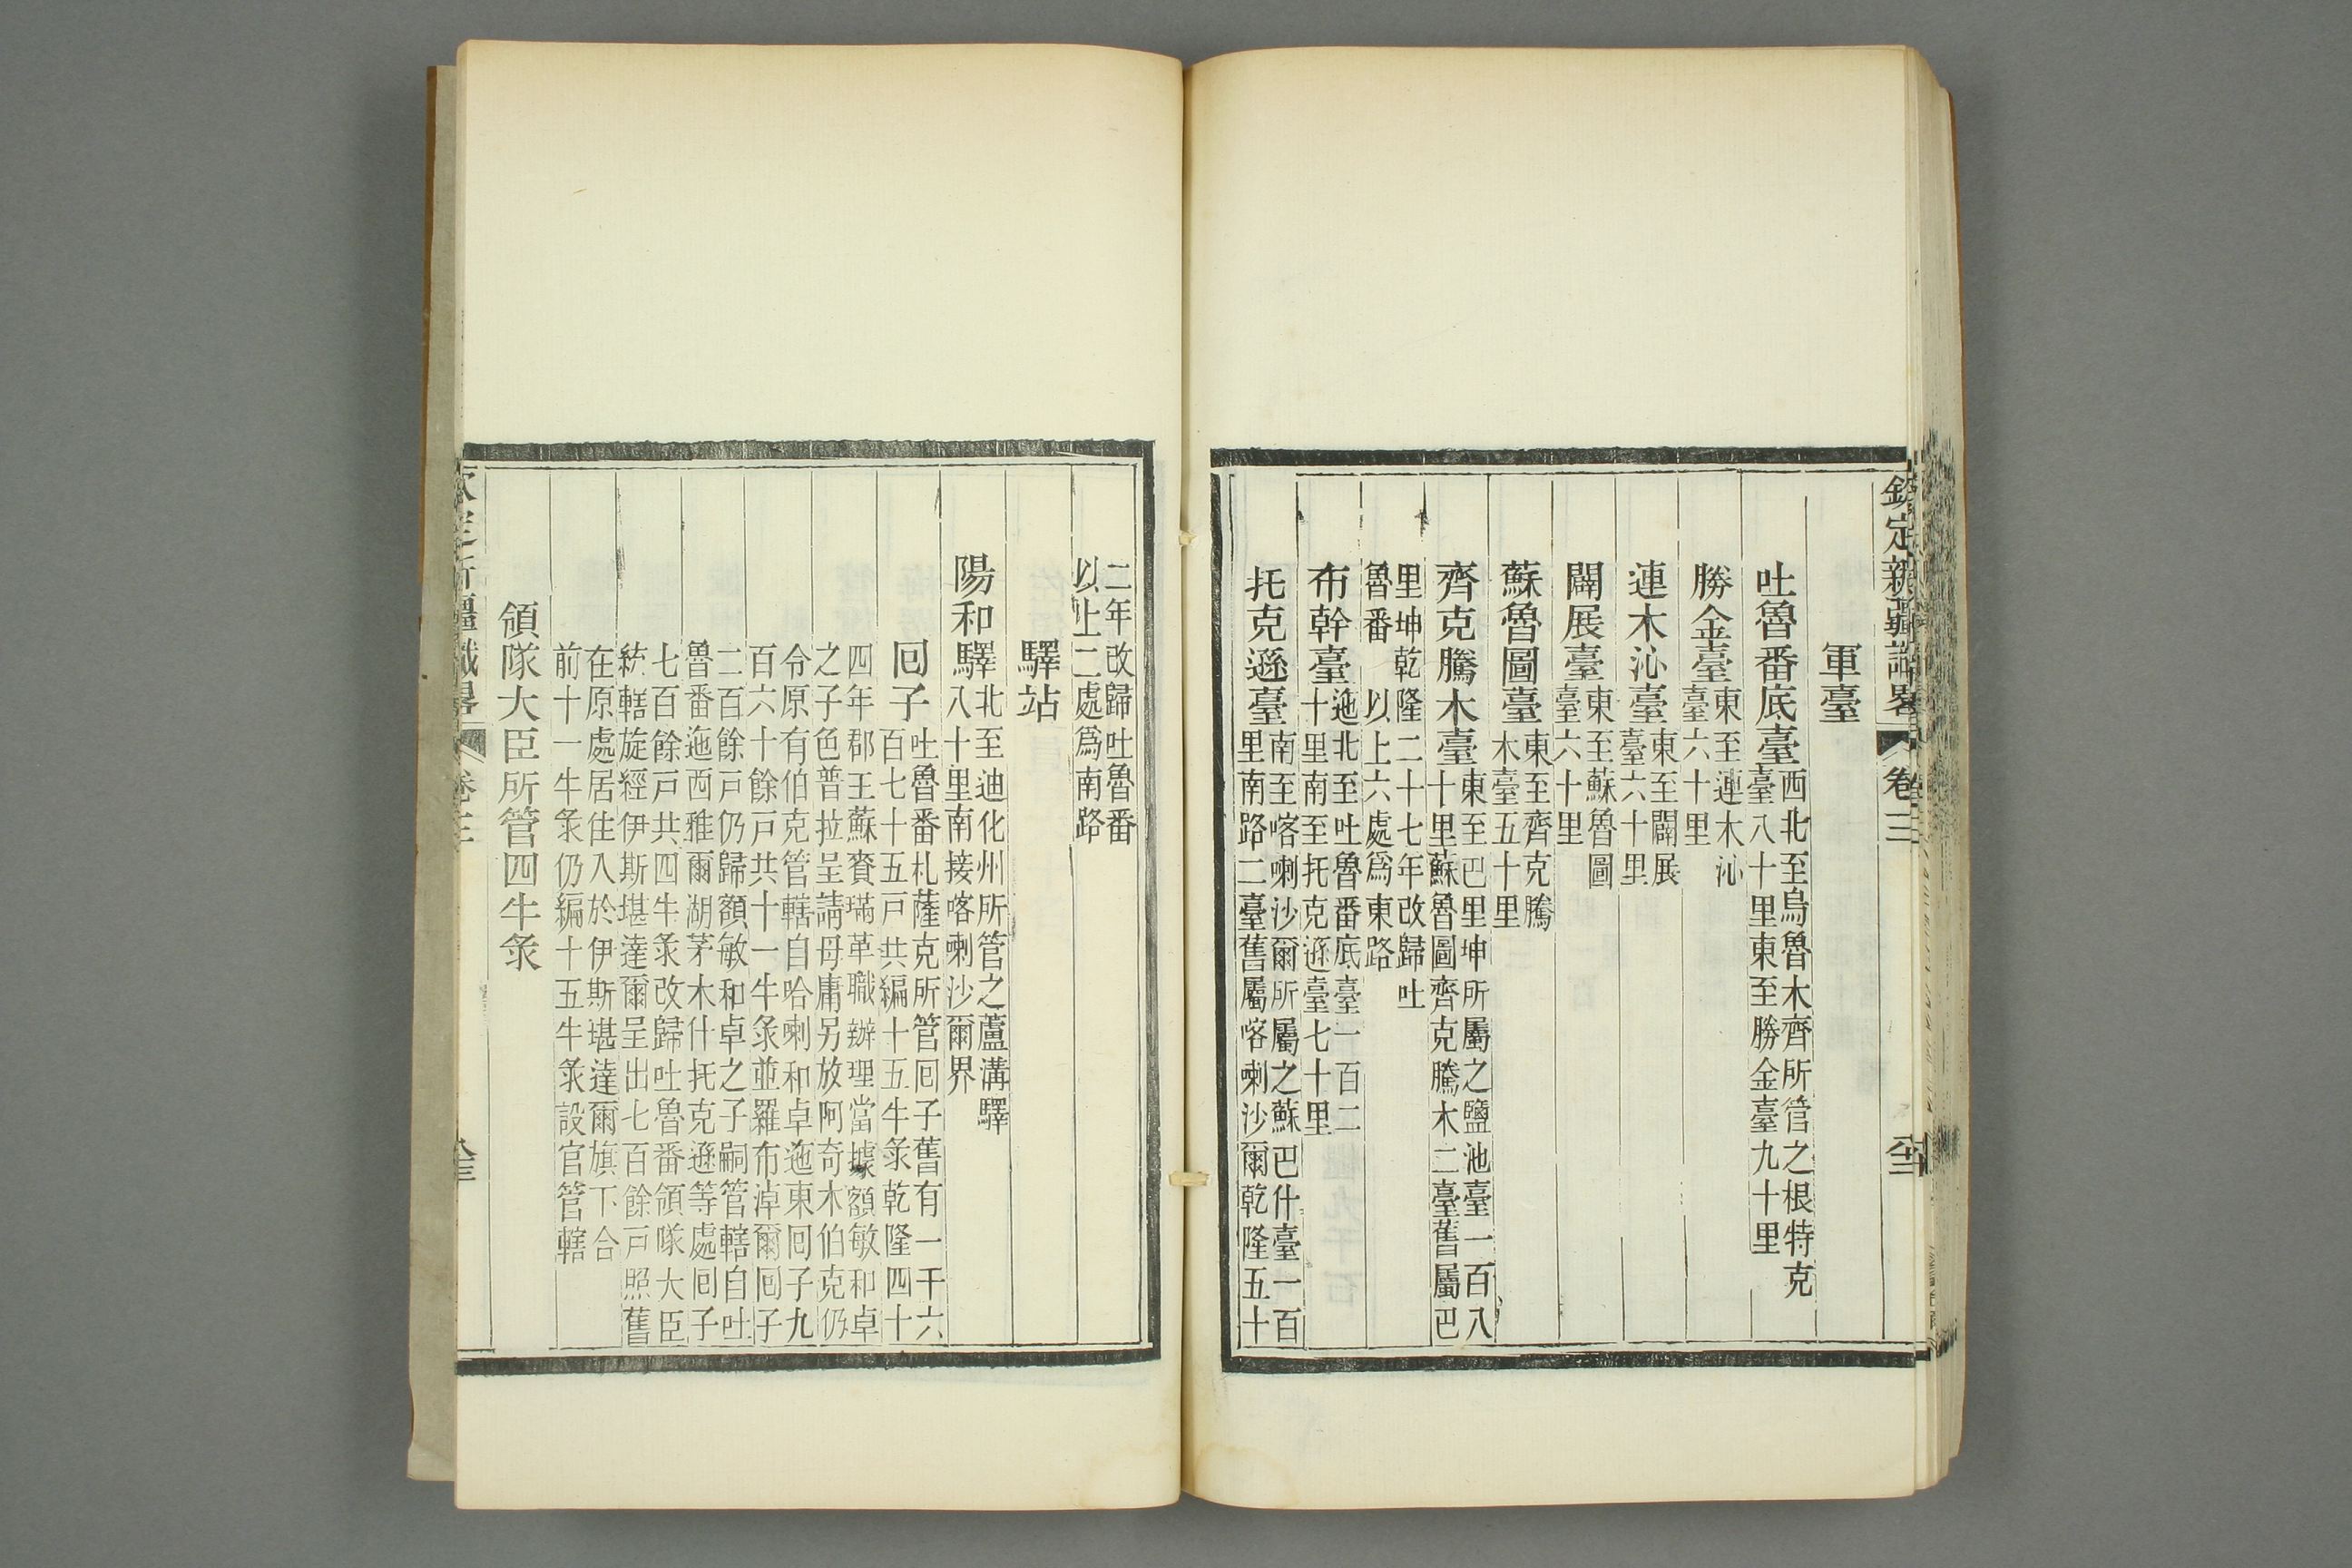 欽定新疆識畧 卷三 八十二
軍臺
吐魯番底臺西北至烏魯木齊所管之根特克
臺八十里東至勝金臺九十里
勝金臺東至連木沁
臺六十里
連木沁臺東至闢展
臺六十里
闢展臺東至蘇魯圖
臺六十里
蘇魯圖臺東至齊克騰
木臺五十里
齊克騰木臺東至巴里坤所屬之鹽池臺一百八
十里蘇魯圖齊克騰木二臺舊屬巴
里坤乾隆二十七年改歸吐
魯番 以上六處爲東路
布幹臺迤北至吐魯番底臺一百二
十里南至托克遜臺七十里
托克遜臺南至喀喇沙爾所屬之蘇巴什臺一百
里南路二臺舊屬喀喇沙爾乾隆五十
二年改歸吐魯番
以上二處爲南路
驛站
陽和驛北至迪化州所管之蘆溝驛
八十里南接喀喇沙爾界
回子吐魯番札薩克所管回子舊有一千六
百七十五戸共編十五牛彔乾隆四十
四年郡王蘇賚璊革職辦理當據額敏和卓
之子色普拉呈請毋庸另放阿奇木伯克仍
令原有伯克管轄自哈喇和卓迤東回子九
百六十餘戸共十一牛彔並羅布淖爾回子
二百餘戸仍歸額敏和卓之子嗣管轄自吐
魯番迤西雅爾湖茅木什托克遜等處回子
七百餘戸共四牛彔改歸吐魯番領隊大臣
統轄旋經伊斯堪達爾呈出七百餘戸照舊
在原處居住入於伊斯堪達爾旗下合
前十一牛彔仍編十五牛彔設官管轄
領隊大臣所管四牛彔
欽定新疆識畧 卷三 八十三